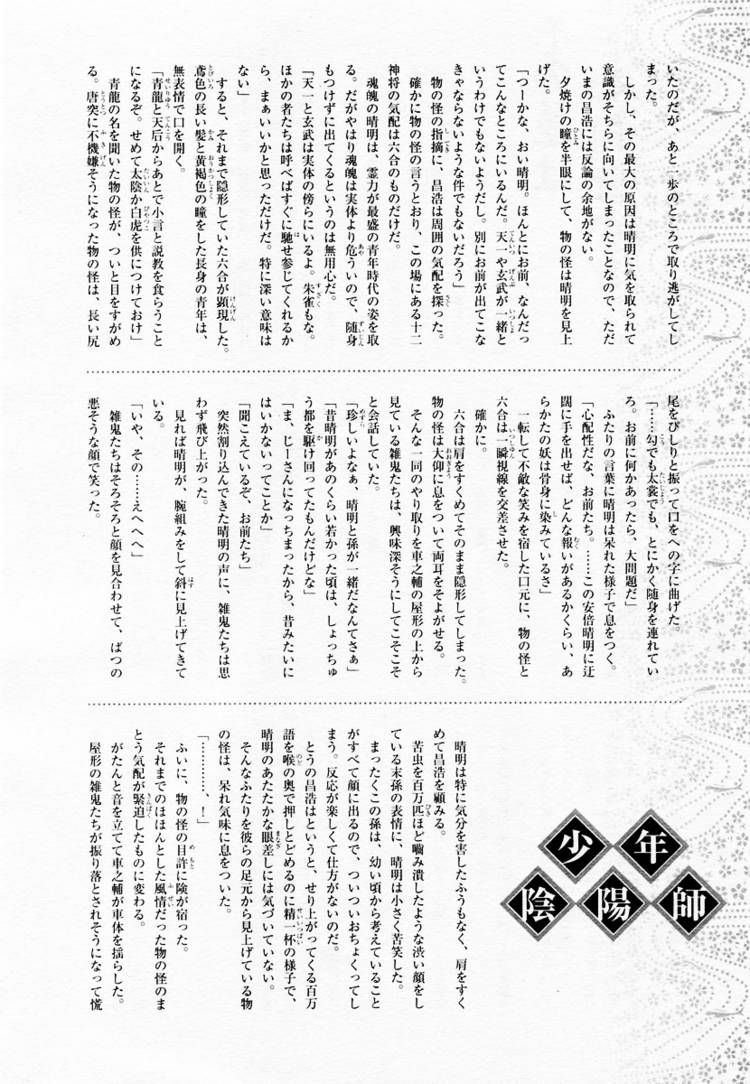 いたのだが、あと一歩のところで取り逃がしてし
まった。
しかし、その最大の原因は晴明に気を取られて
意識がそちらに向いてしまったことなので、ただ
いまの昌浩には反論の余地がない。
夕焼けの瞳を半眼にして、物の怪は晴明を見上
げた。
「つーかな、おい晴明。ほんとにお前、なんだっ
てこんなところにいるんだ。天一や玄武が一緒と
いうわけでもないようだし。別にお前が出てこな
きゃならないような件でもないだろう」
物の怪の指摘に、昌浩は周囲の気配を探った。
確かに物の怪の言うとおり、この場にある十二
神将の気配は六合のものだけだ。
魂魄の晴明は、霊力が最盛の青年時代の姿を取
る。だがやはり魂魄は実体より危ういので、随身
もつけずに出てくるというのは無用心だ。
「天一と玄武は実体の傍らにいるよ。朱雀もな。
ほかの者たちは呼べばすぐに馳せ参じてくれるか
ら、まぁいいかと思っただけだ。特に深い意味は
ない」
すると、それまで隠形していた六合が顕現した。
鳶色の長い髪と黄褐色の瞳をした長身の青年は、
無表情で口を開く。
「青龍と天后からあとで小言と説教を食らうこと
になるぞ。せめて太陰か白虎を供につけておけ」
青龍の名を聞いた物の怪が、ついと目をすがめ
る。唐突に不機嫌そうになった物の怪は、長い尻
尾をぴしりと振って口をへの字に曲げた。
「……勾でも太裳でも、とにかく随身を連れてい
ろ。お前に何かあったら、大問題だ」
ふたりの言葉に晴明は呆れた様子で息をつく。
「心配性だな、お前たち。……この安倍晴明に迂
闊に手を出せば、どんな報いがあるかくらい、あ
らかたの妖は骨身に染みているさ」
一転して不敵な笑みを宿した口元に、物の怪と
六合は一瞬視線を交差させた。
確かに。
六合は肩をすくめてそのまま隠形してしまった。
物の怪は大仰に息をついて両耳をそよがせる。
そんな一同のやり取りを車之輔の屋形の上から
見ている雑鬼たちは、興味深そうにしてこそこそ
と会話していた。
「珍しいよなぁ、晴明と孫が一緒だなんてさぁ」
「昔晴明があのくらい若かった頃は、しょっちゅ
う都を駆け回ってたもんだけどな」
「ま、じーさんになっちまったから、昔みたいに
はいかないってことか」
「聞こえているぞ、お前たち」
突然割り込んできた晴明の声に、雑鬼たちは思
わず飛び上がった。
見れば晴明が、腕組みをして斜に見上げてきて
いる。
「いや、その……えへへへ」
雑鬼たちはそろそろと顔を見合わせて、ばつの
悪そうな顔で笑った。
晴明は特に気分を害したふうもなく、肩をすく
めて昌浩を顧みる。
苦虫を百万匹ほど噛み潰したような渋い顔をし
ている末孫の表情に、晴明は小さく苦笑した。
まったくこの孫は、幼い頃から考えていること
がすべて顔に出るので、ついついおちょくってし
まう。反応が楽しくて仕方がないのだ。
とうの昌浩はというと、せり上がってくる百万
語を喉の奥で押しとどめるのに精一杯の様子で、
晴明のあたたかな眼差しには気づいていない。
そんなふたりを彼らの足元から見上げている物
の怪は、呆れ気味に息をついた。
「…………、！」
ふいに、物の怪の目許に険が宿った。
それまでのほほんとした風情だった物の怪のま
とう気配が緊迫したものに変わる。
がたんと音を立てて車之輔が車体を揺らした。
屋形の雑鬼たちが振り落とされそうになって慌
少年
陰陽師